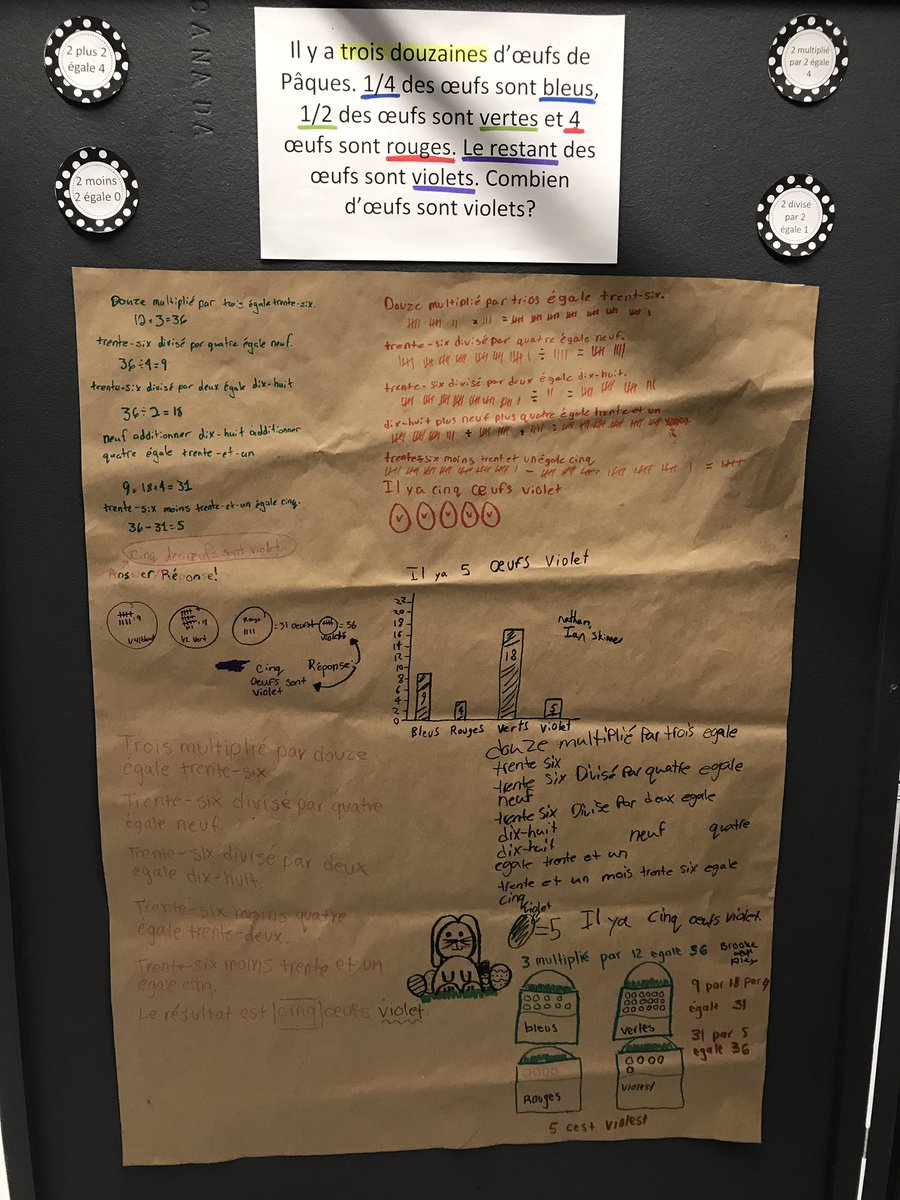 CANADA
2 plus 2
égale 4
2 moins
2 égale 0
2 multiplié
par 2 égale
4
2 divisé
par 2
égale 1
Il y a trois douzaines d'œufs de
Pâques. 1/4 des œufs sont bleus,
1/2 des œufs sont vertes et 4
œufs sont rouges. Le restant des
œufs sont violets. Combien
d'œufs sont violets?
Douze multiplié par trois égale trente-six.
12×3=36
trente-six divisé par quatre égale neuf.
36÷4=9
trente-six divisé par deux égale dix-huit
36÷2=18
neuf additionner dix-huit additionner
quatre égale trente-et-un
9+18+4=31
trente-six moins trente-et-un égale cinq.
36-31=5
cinq des œufs sont violet.
Answer/Réponse!
Douze multiplié par trios égale trent-six.
trente-six divisé par quatre égale neuf.
trente-six divisé par deux égale dix-huit.
dix-huit plus neuf plus quatre égale trente et un
trente-six moins trent et un égale cinq
Il y a cinq œufs violet
v v v v v
=9
1/4 bleu
=18
1/2 vert
Rouge
=31
=36
violets
Réponse:
Cinq
oeufs sont
violet
Il y a 5 œufs violet
22
20
18
16
14
12
10
8
6
4
2
0
9
4
18
5
Bleus Rouges verts violet
nathan,
Ian
Trois multiplié par douze
égale trente-six.
Trente-six divisé par quatre
égale neuf.
Trente-six divisé par deux
égale dix-huit.
Trente-six moins quatre
égale trente-deux.
Trente-six moins trente et un
égale cinq.
Le résultat est cinq œufs violet.
douze multiplié Par trois egale
trente six
trente six Divisé par quatre egale
neuf
trente six Divise Par deux egale
dix-huit
dix-huit neuf quatre
egale trente et un
trente et un mois trente six egale
cinq
violet
=5 Il y a cinq œufs violet.
3 multiplié par 12 egale 36
Brooke
bleus
verles
Rouges
violest
9 par 18 par 4
égale 31
31 par 5
égale 36
5 cest violest